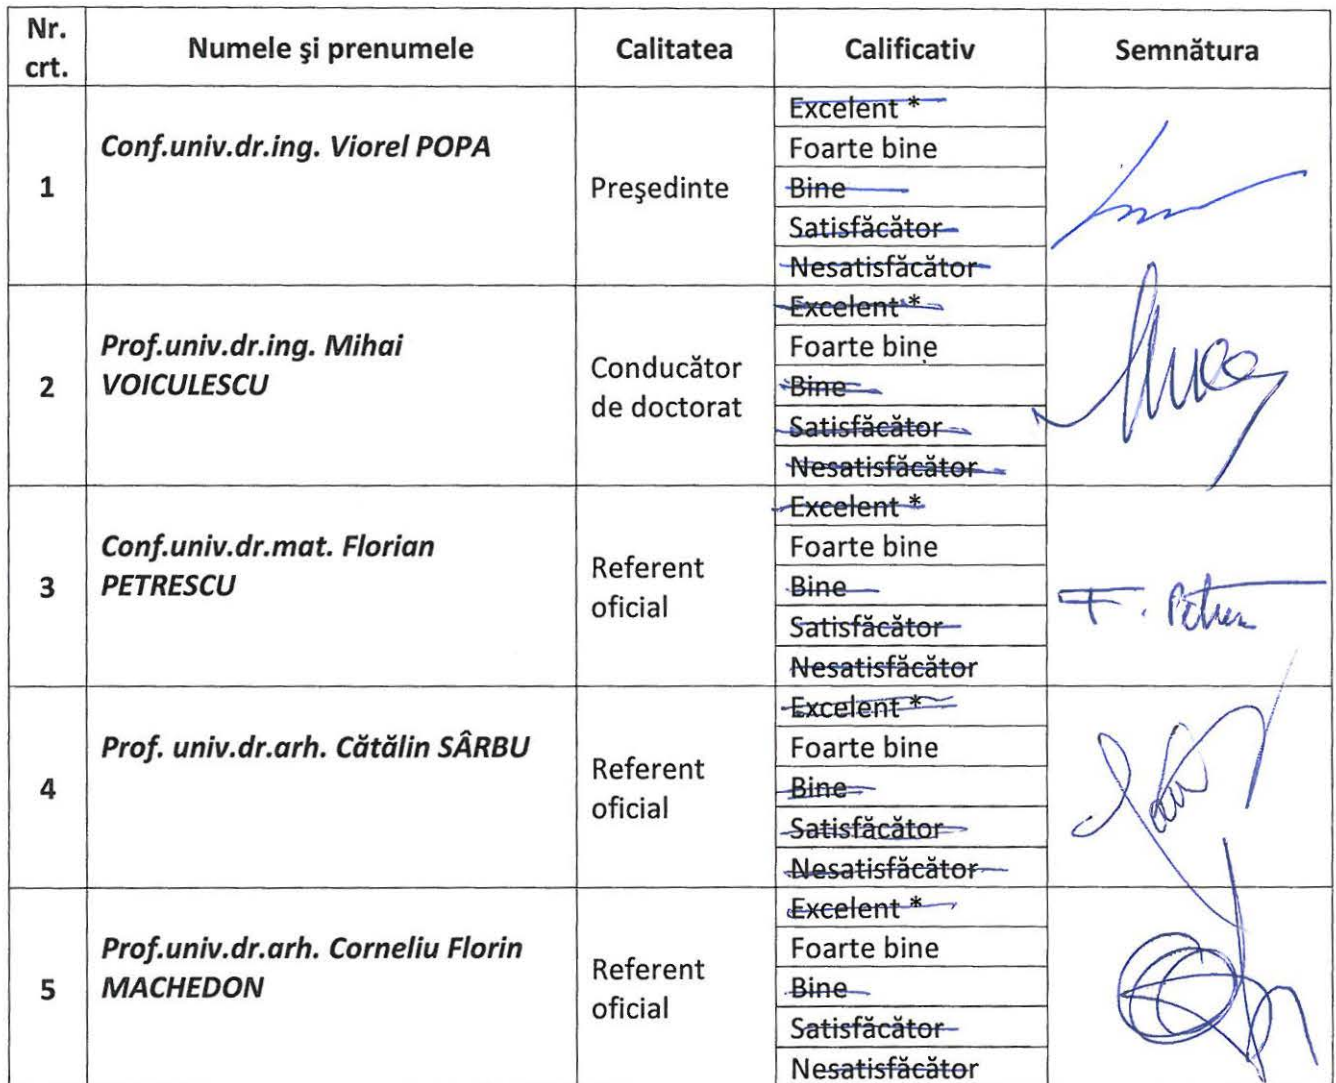 Nr. crt. Numele şi prenumele Calitatea Calificativ Semnătura
1 Conf.univ.dr.ing. Viorel POPA Preşedinte
Excelent *
Foarte bine
Bine
Satisfăcător
Nesatisfăcător
2 Prof.univ.dr.ing. Mihai
VOICULESCU
Conducător
de doctorat
Excelent *
Foarte bine
Bine
Satisfăcător
Nesatisfăcător
3 Conf.univ.dr.mat. Florian
PETRESCU
Referent
oficial
Excelent *
Foarte bine
Bine
Satisfăcător
Nesatisfăcător
F.
4 Prof. univ.dr.arh. Cătălin SÂRBU
Referent
oficial
Excelent *
Foarte bine
Bine
Satisfăcător
Nesatisfăcător
5 Prof.univ.dr.arh. Corneliu Florin
MACHEDON
Referent
oficial
Excelent *
Foarte bine
Bine
Satisfăcător
Nesatisfăcător